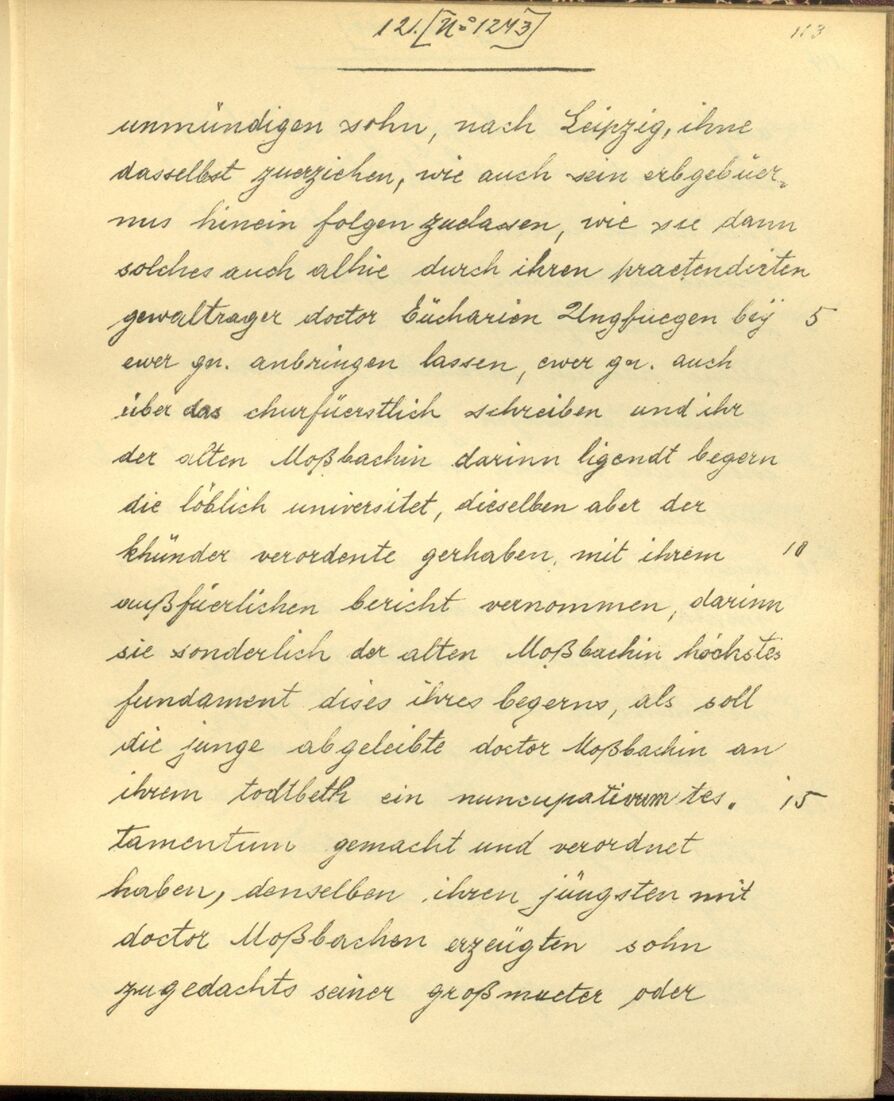 121. [N° 1273]
113
unmündigen sohn, nach Leipzig, ihne
dasselbst zuerziehen, wie auch sein erbgebüer-
nus hinein folgen zuelassen, wie sie dann
solches auch alhie durch ihren praetendirten
gewaltrager doctor Eücharien Ungfuegen beÿ 5
ewer gn. anbringen lassen, ewer gn. auch
über das churfüerstlich schreiben und ihr
der alten Moßbachin darinn ligendt begern
die löblich universitet, dieselben aber der
khünder verordente gerhaben, mit ihrem 10
außfüerlichen bericht vernommen, darinn
sie sonderlich der alten Moßbachin höchstes
fundament dises ihres begerns, als soll
die junge abgeleibte doctor Moßbachin an
ihrem todtbeth ein nuncupativum tes- 15
tamentum gemacht und verordnet
haben, denselben ihren jüngsten mit
doctor Moßbachen erzeügten sohn
zugedachts seiner großmueter oder